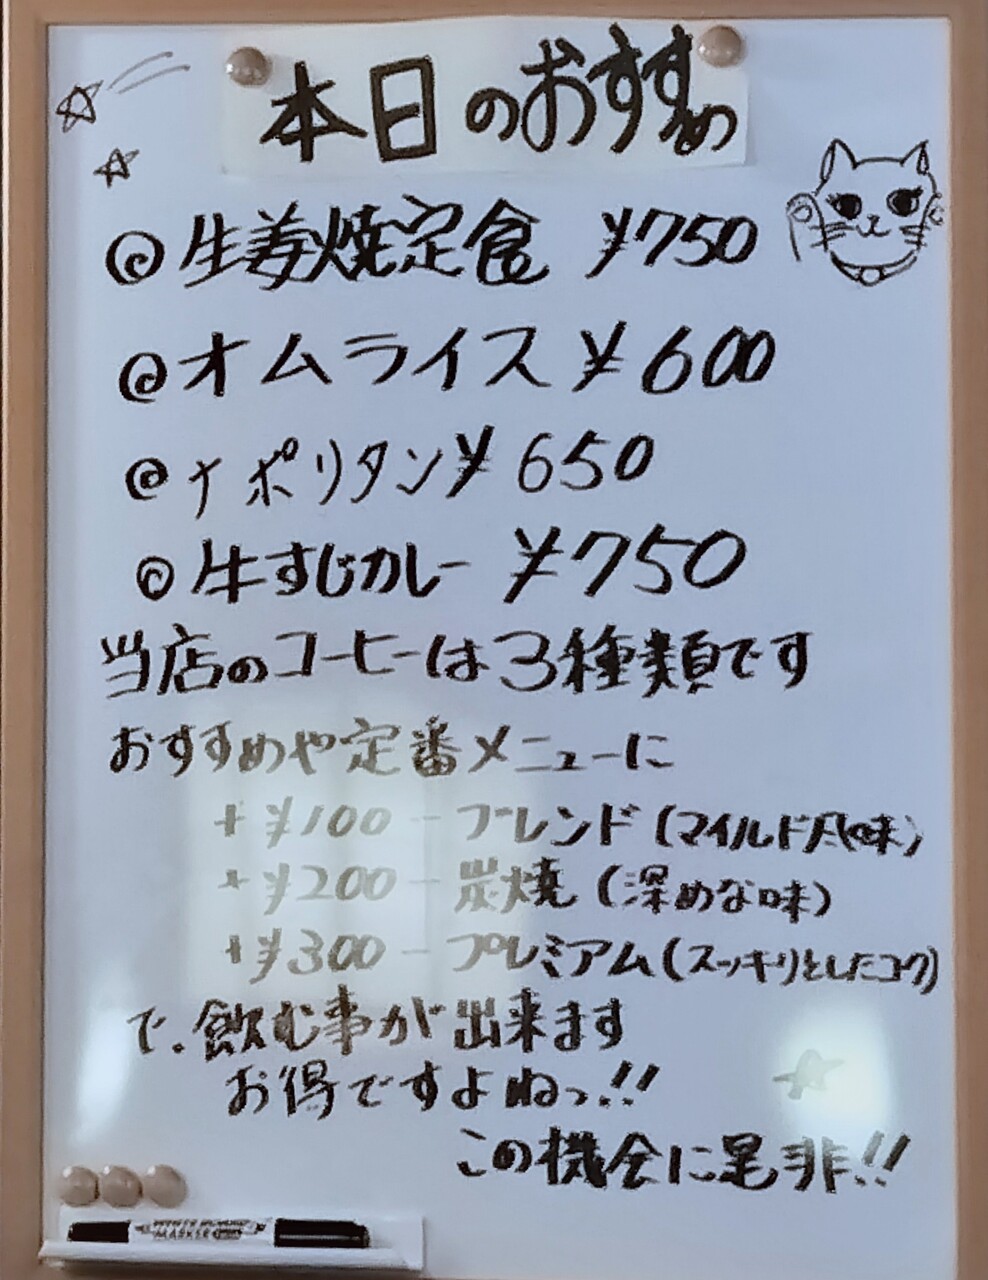 本日のおすすめ
◎生姜焼定食 ¥750
◎オムライス ¥600
◎ナポリタン ¥650
◎牛すじカレー ¥750
当店のコーヒーは3種類です
おすすめや定番メニューに
+¥100-ブレンド(マイルド風味)
+¥200-炭焼(深めな味)
+¥300-プレミアム(スッキリとしたコク)
で、飲む事が出来ます
お得ですよねっ!!
この機会に是非!!
MARKER